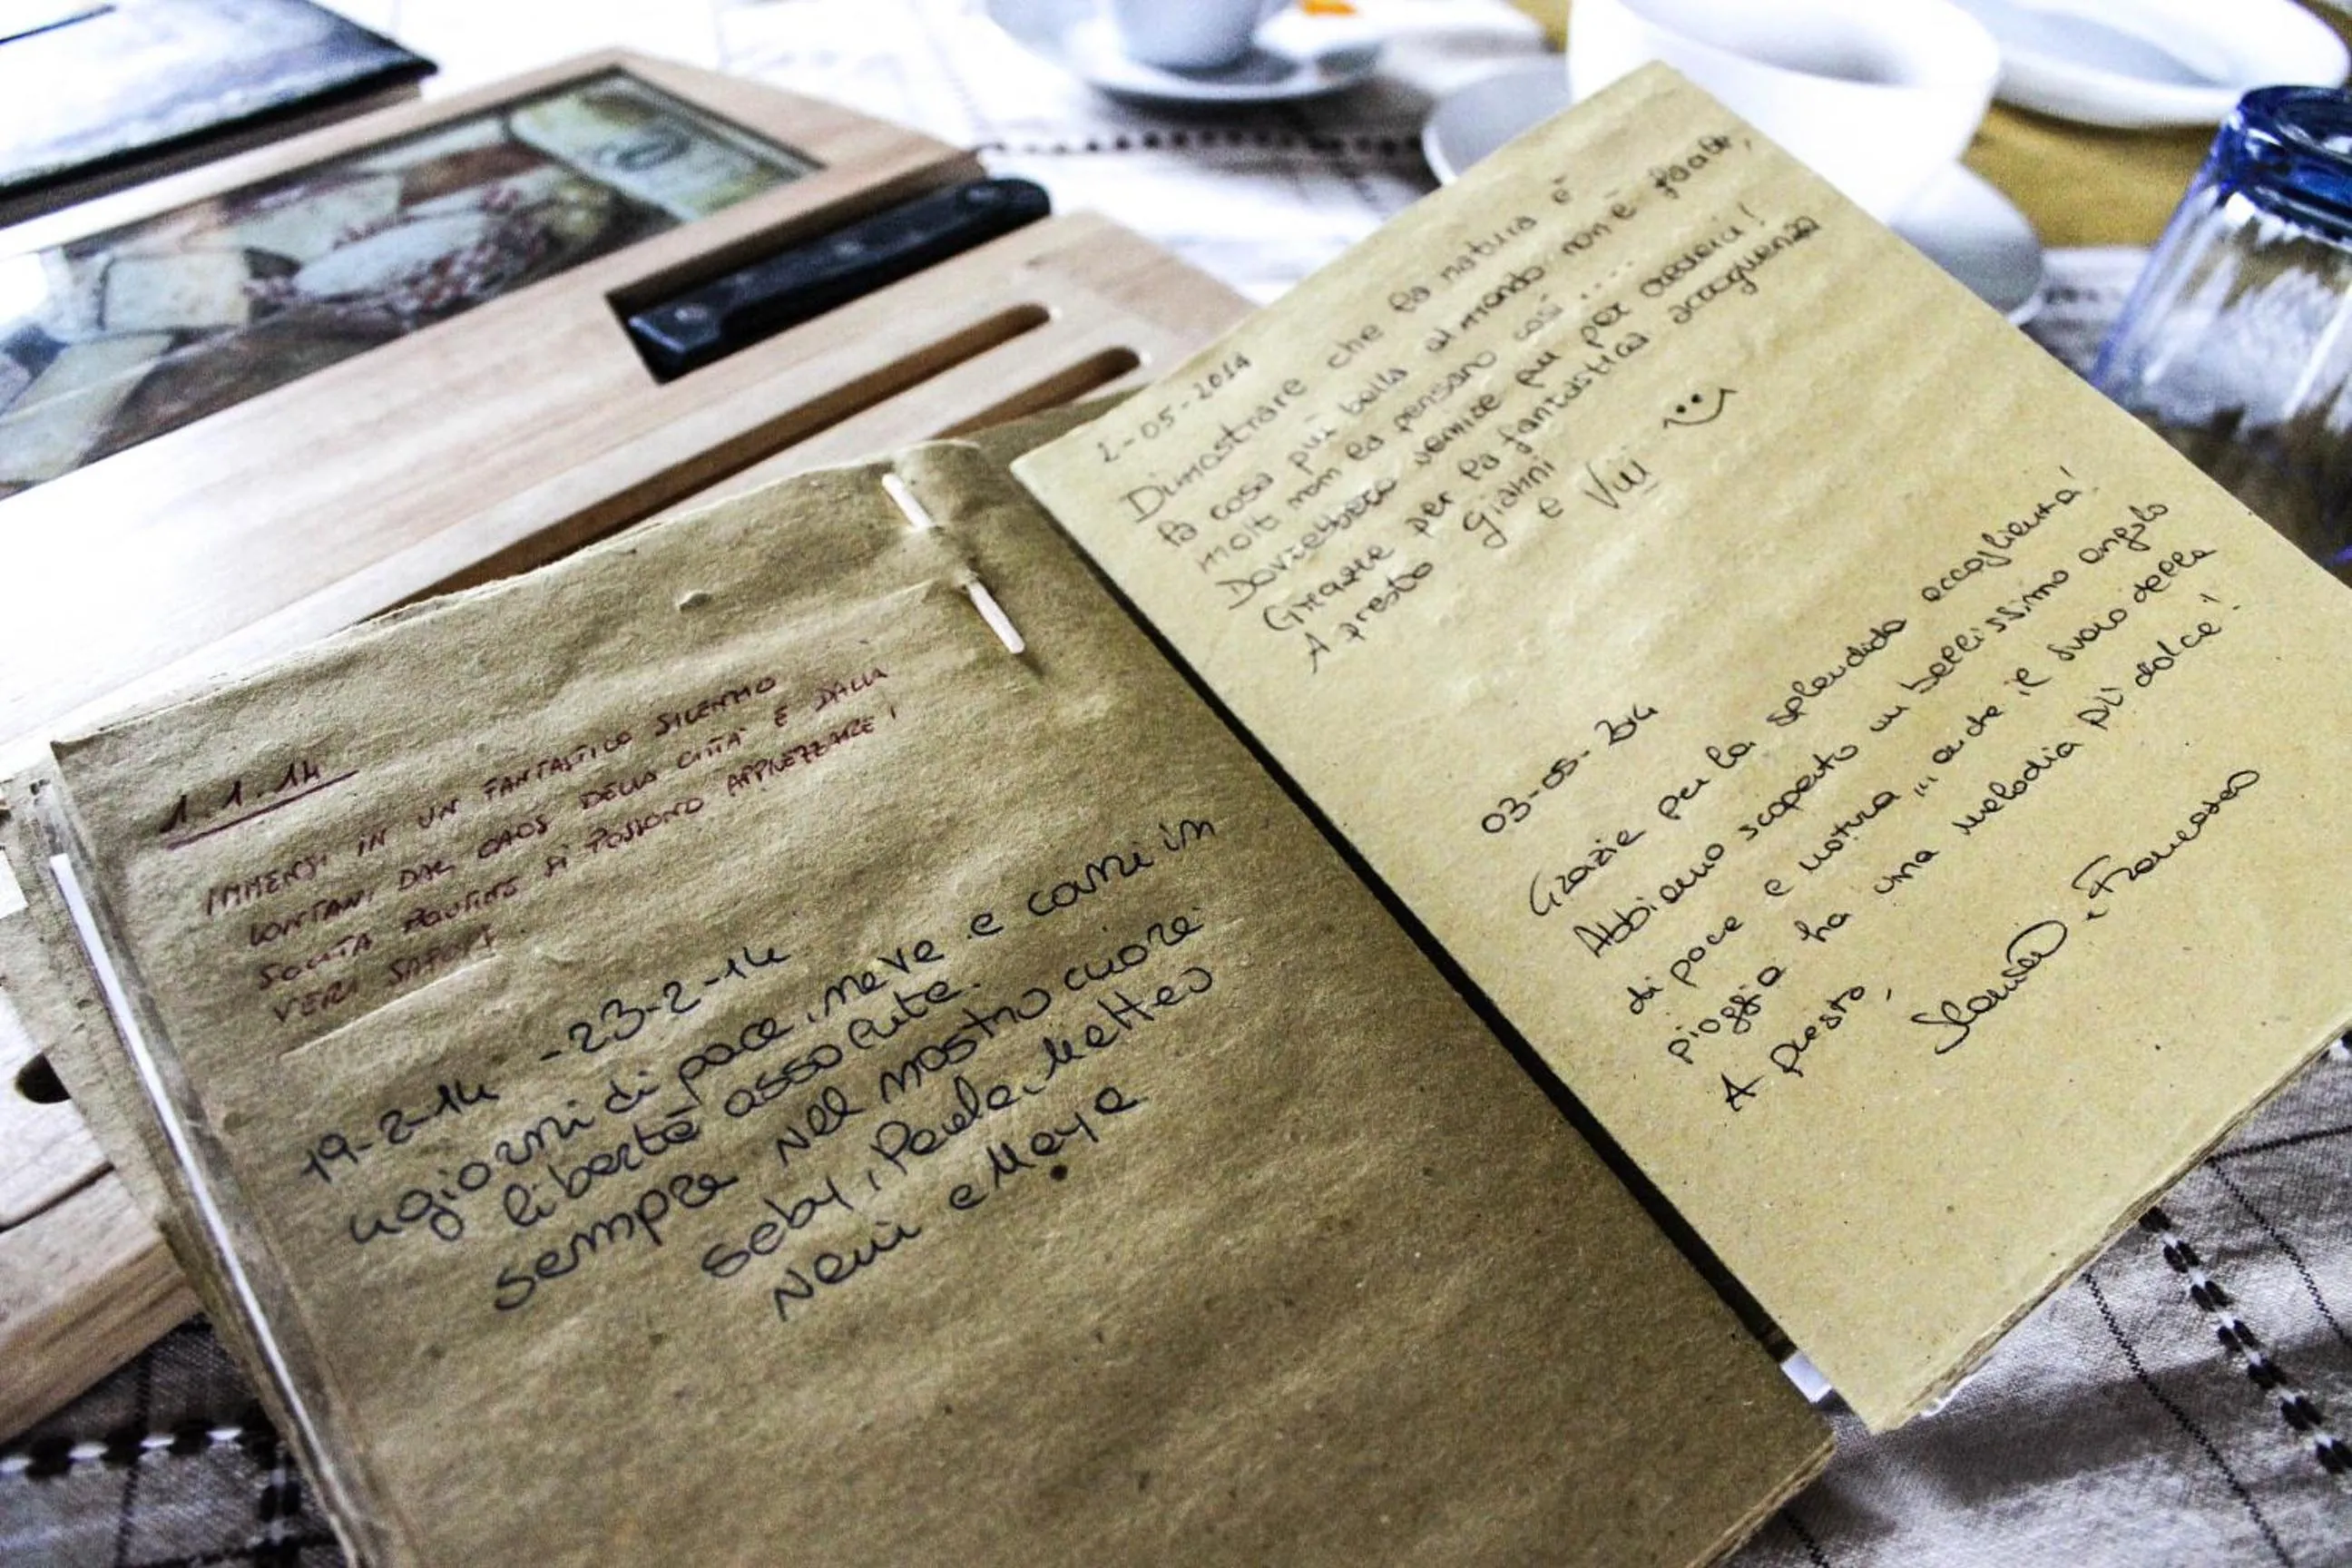 1.1.14
IMMERSI IN UN FANTASTICO SILENZIO
LONTANI DAL CAOS DELLA CITTÀ E DALLA
SOLITA ROUTINE SI POSSONO APPREZZARE I
VERI SAPORI.
19-2-14 -23-2-14
giorni di pace, neve e corse in
libertà assolute.
sempre nel nostro cuore
Seby, Paola, Matteo
e Maya
2-05-2014
Dimostrare che la natura è
la cosa più bella al mondo non è facile,
molti non la pensano così ....
Dovrebbero venire qui per crederci!
Grazie per la fantastica accoglienza
A presto Gianni
e Vivi
03-05-2014
Grazie per la splendida accoglienza!
Abbiamo scoperto un bellissimo angolo
di pace e natura ... anche il suono della
pioggia ha una melodia più dolce!
A presto,
e Francesca